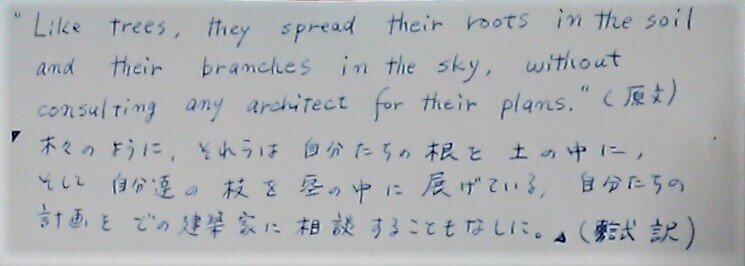 "Like trees, they spread their roots in the soil
and their branches in the sky, without
consulting any architect for their plans." (原文)
木々のように, それらは 自分たちの 根を 土の中に,
そして 自分達の 枝を 空の中に 展げている, 自分たちの
計画を どの 建築家に 相談 することもなしに。(試訳)